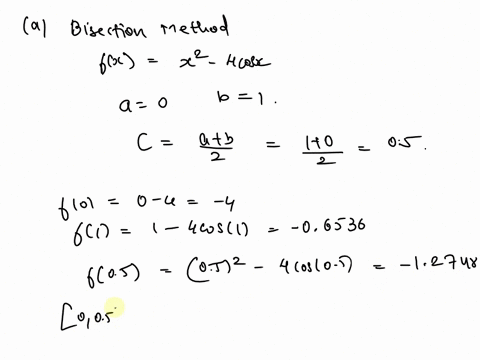 (a) Bisection Method
f(x) = x² - 4cosx
a = 0 b = 1.
C = (a+b)/2 = (1+0)/2 = 0.5.
f(0) = 0-4 = -4
f(1) = 1 - 4cos(1) = -0.6536
f(0.5) = (0.5)² - 4cos(0.5) = -1.2748
[0,0.5